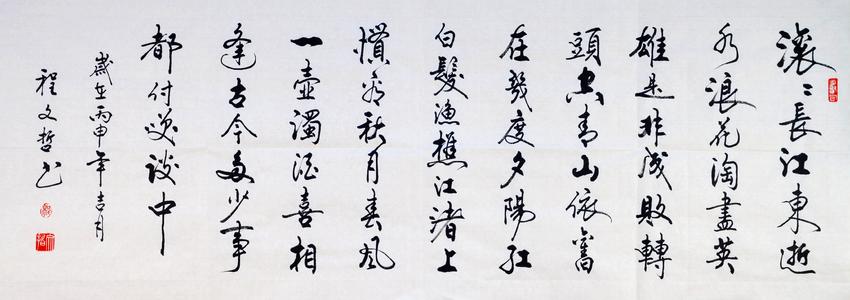 滚〻長江東逝
水浪花淘盡英
雄是非成敗轉
頭空青山依舊
在幾度夕陽紅
白髮漁樵江渚上
慣看秋月春風
一壺濁酒喜相
逢古今多少事
都付笑談中
歲在丙申年吉月
程文哲书